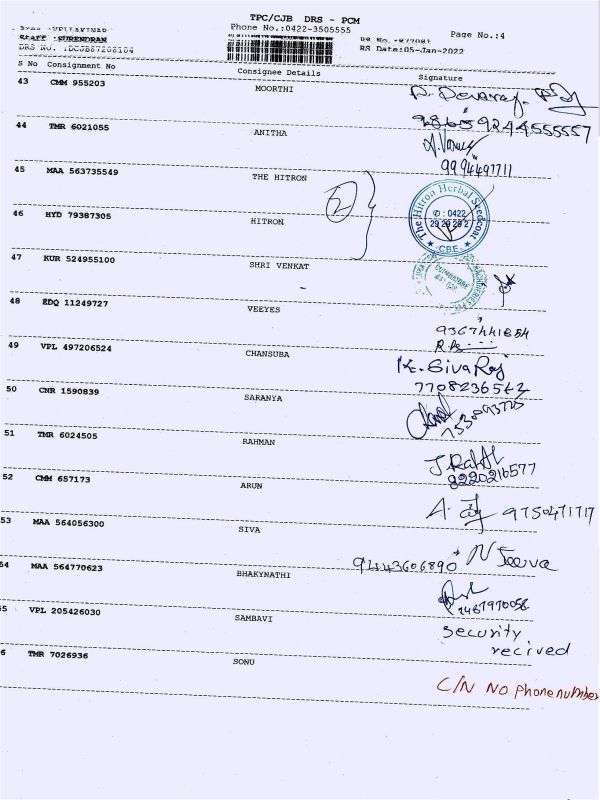 TPC/CJB DRS - PCM
Phone No.:0422-3505555
Page No.:4
Staff :SURENDRAN
DRS No. :DCJB87208104
RS Date:05-Jan-2022
S No Consignment No Consignee Details Signature
43 CMM 955203 MOORTHI
44 TMR 6021055 ANITHA
9994497711
45 MAA 563735549 THE HITRON
The Hitron Herbal Seedcoat
✆ : 0422
CBE
46 HYD 79387305 HITRON
47 KUR 524955100 SHRI VENKAT
COIMBATORE
48 EDQ 11249727 VEEYES
9367441854
49 VPL 497206524 CHANSUBA
K. Siva Raj
7708236542
50 CNR 1590839 SARANYA
51 TMR 6024505 RAHMAN
8220216577
52 CMM 657173 ARUN
9750471717
53 MAA 564056300 SIVA
9443606890 N Jeeva
54 MAA 564770623 BHAKYNATHI
55 VPL 205426030 SAMBAVI
security
recived
6 TMR 7026936 SONU
C/N No phone number